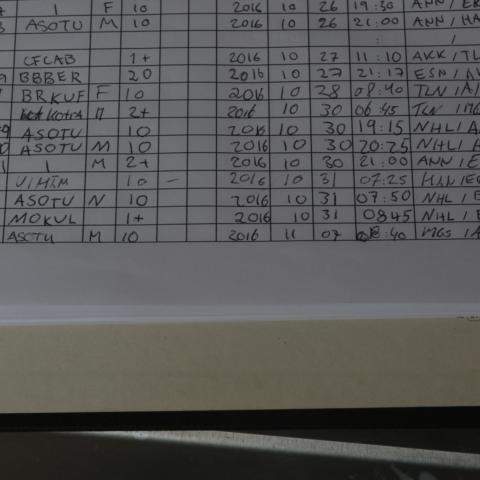 1 F 10 2016 10 26 19:30 ANN/
ASOTU M 10 2016 10 26 21:00 ANN/HA
: /
CFLAB 1+ 2016 10 27 11:10 AKK/TL
BBBER 20 2016 10 27 21:17 ESN/
BRKUF F 10 2016 10 28 08:40 TLN/A/
2+ 2016 10 30 06:45 TLN/MG
ASOTU 10 2016 10 30 19:15 NHL/A
ASOTU M 10 2016 10 30 20:25 NHL/
1 1 M 2+ 2016 10 30 21:00 ANN/E
10 – 2016 10 31 07:25 HAN/EC
ASOTU N 10 2016 10 31 07:50 NHL/E
MOKUL 1+ 2016 10 31 0845 NHL/E
ASOTU M 10 2016 11 07 08:40 MGS/A